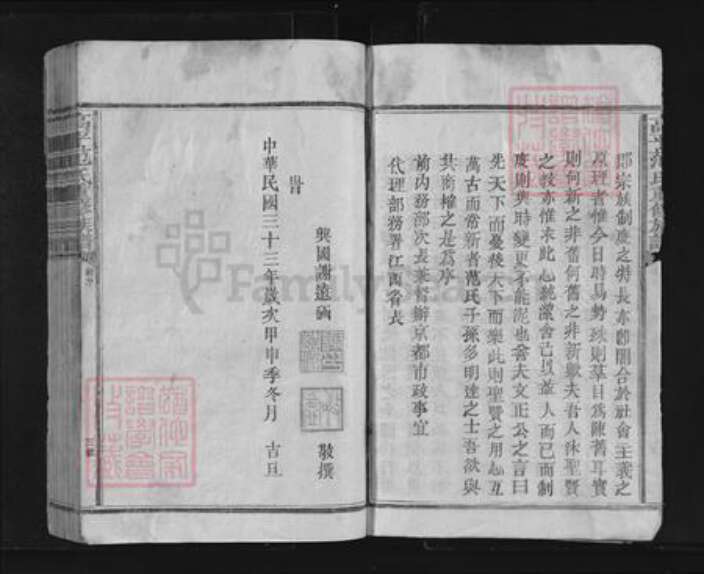 即宗族制度之特長亦即闇合於社會主義之
原理者惟今日時易勢殊則羣目為陳舊耳實
則何新之非舊何舊之非新歟夫吾人休聖賢
之教亦惟求此心能濂舍己以益人而已而制
度則與時變更不能泥也昔夫文正公之言曰
先天下而憂後天下而樂此則聖賢之用心亙
萬古而常新者范氏子孫多明達之士吾欲與
共商榷之是為序
前內務部次長兼督辦京都市政事宜
代理部務署江西省長
興國謝遠涵
敬撰
中華民國三十三年歲次甲申季冬月 吉旦
FamilySearch